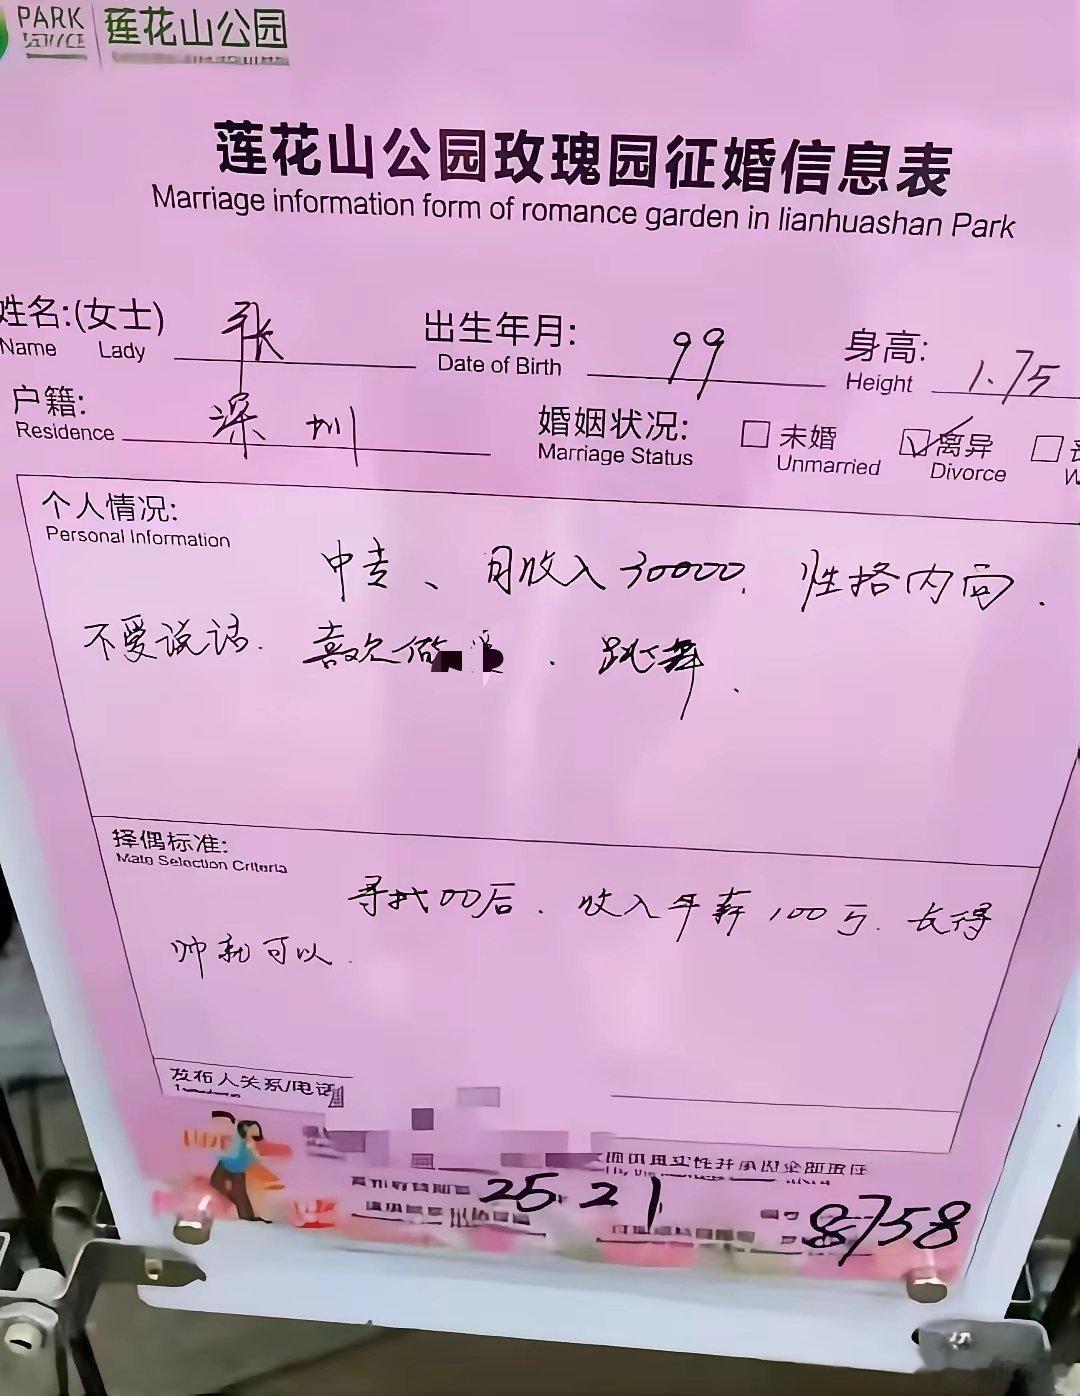 PARK
莲花山公园
莲花山公园玫瑰园征婚信息表
Marriage information form of romance garden in lianhuashan Park
姓名:(女士) 张 出生年月: 99 身高: 1.75
Name Lady Date of Birth Height
户籍: 深圳 婚姻状况: 未婚 离异
Residence Marriage Status Unmarried Divorce
个人情况:
Personal Information
中专、月收入30000. 性格内向.
不爱说话. 喜欢做 . 跳舞.
择偶标准:
Mate Selection Criteria
寻找00后. 收入年薪100万. 长得
帅就可以.
发布人关系/电话
25.21
8758